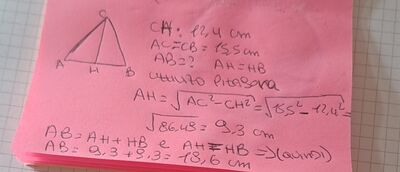 C
A H B
CH: 12,4 cm
AC=CB= 15,5 cm
AB=? AH=HB
utilizzo Pitagora
AH=√AC²-CH²=√15,5²-12,4²=
√86,49= 9,3 cm
AB=AH+HB e AH=HB =>(quindi)
AB= 9,3+9,3= 18,6 cm